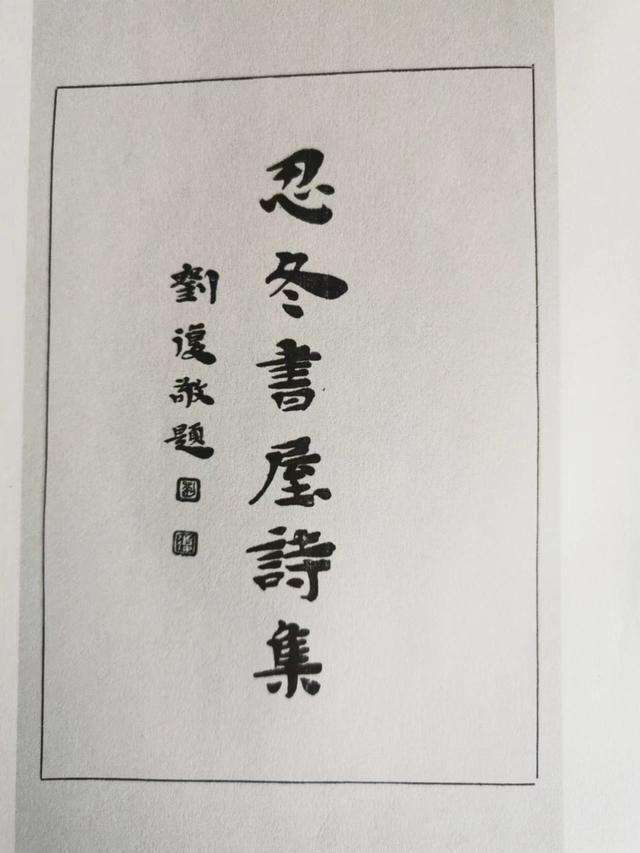 忍冬書屋詩集
劉復敬題